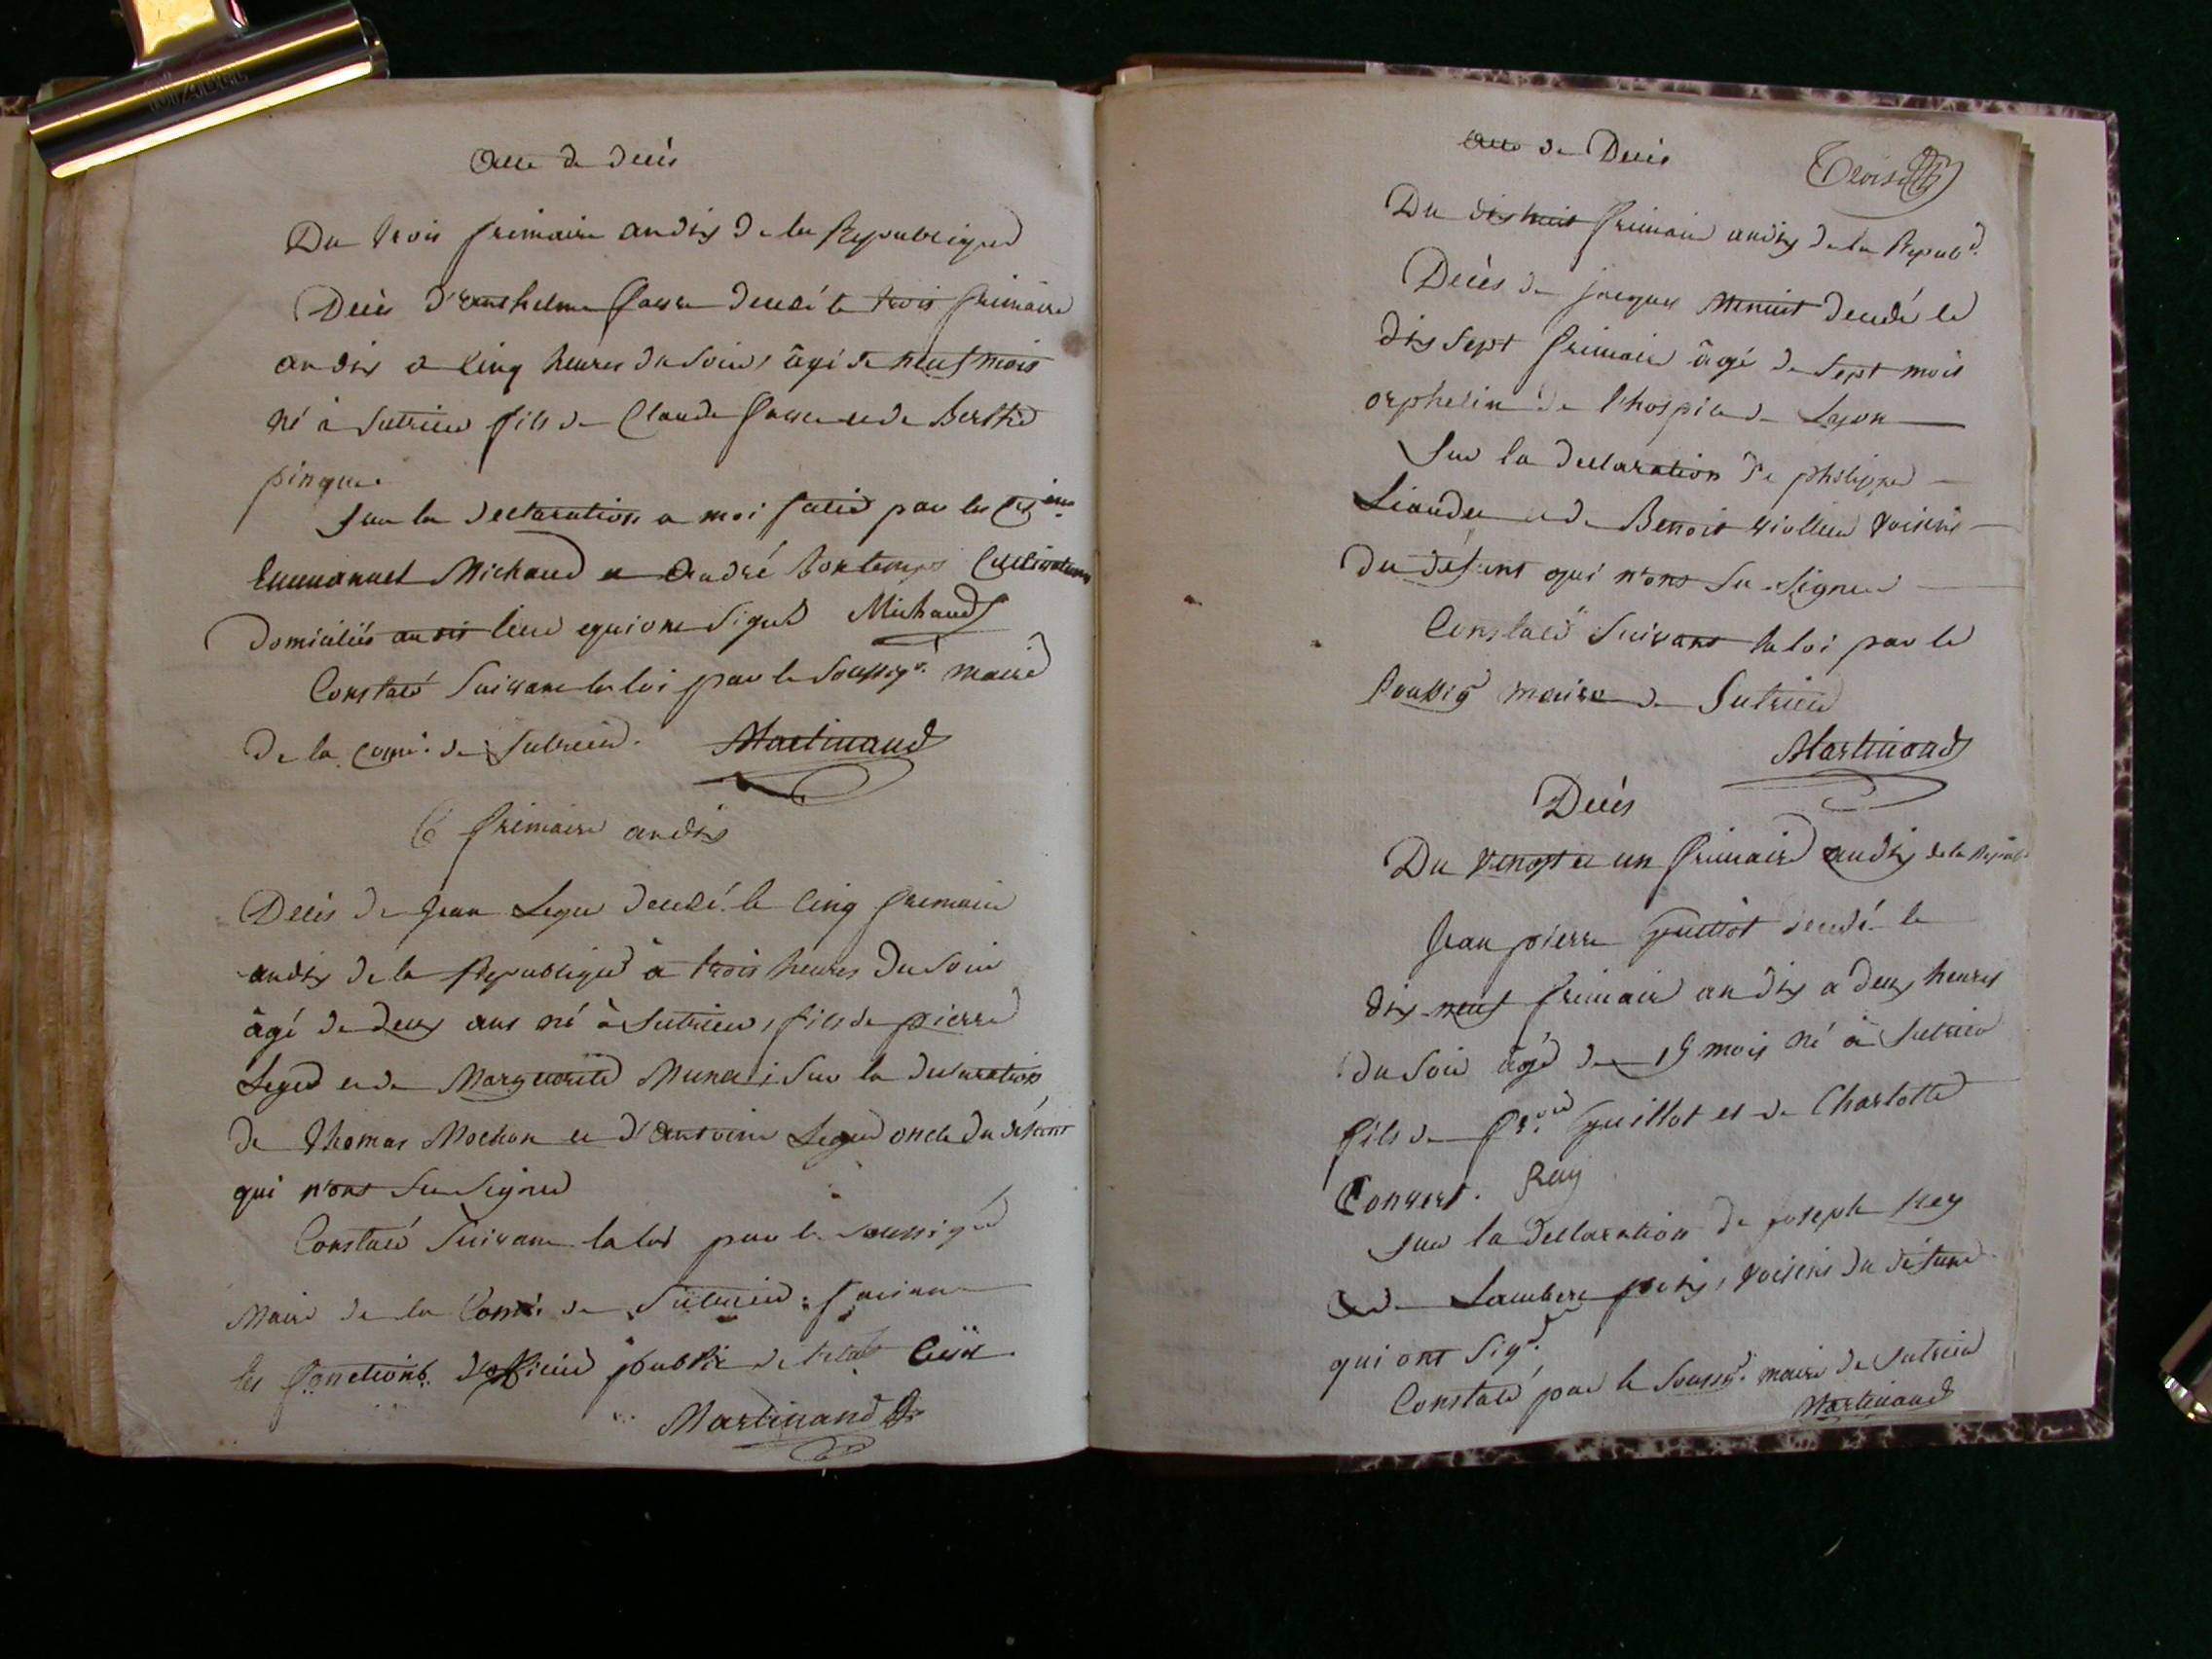 Acte de Décès
Du trois frimaire an dix de la Republique
Décès d'anthelme passe decedé le trois frimaire
an dix a cinq heures du soir, âgé de neuf mois
né à Sutrieu fils de Claude passe et de Berthe
pingue.
Sur la declaration a moi faite par les
Emmanuel Michaud et André Bontemps Cultivateurs
domiciliés au dit lieu equi ont Signé Michaud
Constaté Suivant la loi par le Soussigé. maire
de la Comé. de Sutrieu. Martinand
6 frimaire an dix
Décès de Jean Leger decedé le cinq frimaire
an dix de la Republique à trois heures du soir
âgé de deux ans né à Sutrieu, fils de pierre
Leger et de Marguerite ; Sur la declaration
de thomas Mochon et d'antoine Leger oncle du défunt
qui n'ont Su Signer
Constaté Suivant la loi par le soussigé
Maire de la Comé. de Sutrieu faisant
les fonctions d'officier public de l'etat Civil
Martinand
Acte de Décès
Trois
Du dix huit frimaire an dix de la Repub.
Décès de jacques Menuit decedé le
dix sept frimaire âgé de Sept mois
orphelin de l'hospice de Lyon
Sur la declaration de philippe
et de Benoit voisins
du défunt qui n'ont Su Signer
Constaté Suivant la loi par le
Soussig maire de Sutrieu
Martinand
Décès
Du vingt et un frimaire an dix de la Republ
Jean pierre Guillot decedé le
dix neuf frimaire an dix a deux heures
du Soir âgé de 19 mois né à Sutrieu
fils de Guillot et de Charlotte
Convert. Rey
Sur la declaration de joseph Rey
et de Lambert , voisins du défunt
qui ont Sig.
Constaté par le Souss. maire de Sutrieu
Martinand